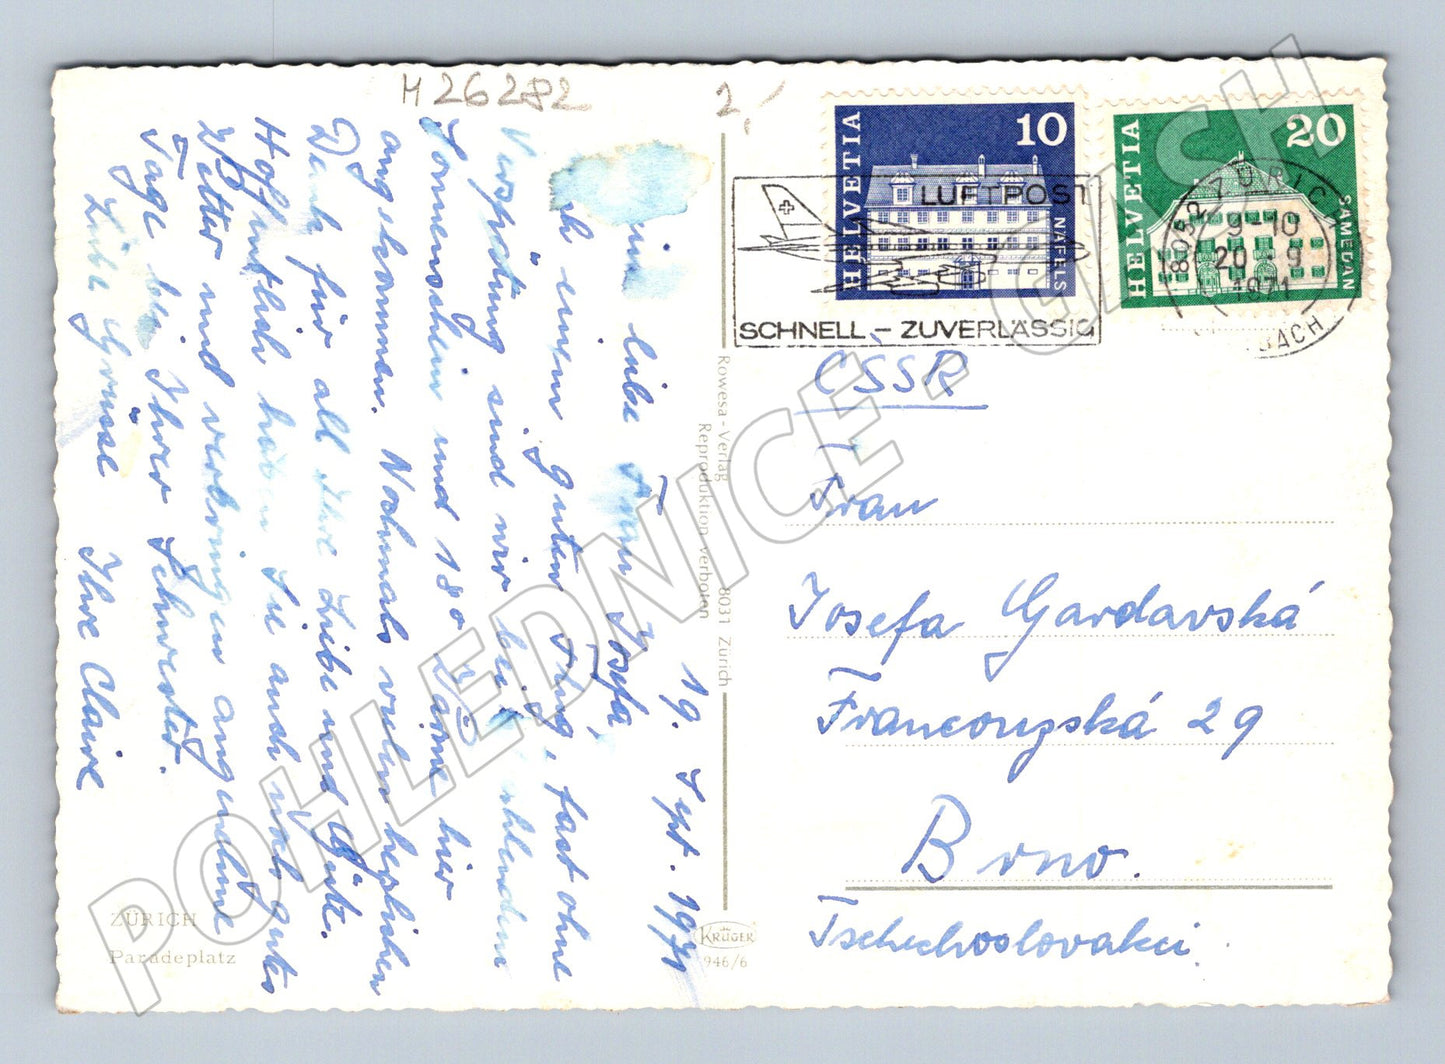 M 26282
2,-
19. Sept. 1971
liebe Frau Josefa,
einem guten Flug, fast ohne
Verspätung sind wir bei
Sonnenschein und 18° Wärme hier
angekommen. Nochmals vielen herzlichen
Dank für all Ihre Liebe und Güte.
Hoffentlich haben Sie auch noch gutes
Wetter und verbringen angenehme
Tage bei Ihrer Schwester.
Liebe Grüsse Ihre Claire
ZÜRICH
Paradeplatz
Rowesa-Verlag 8031 Zürich
Reproduktion verboten
KRÜGER
946/6
HELVETIA 10
NÄFELS
HELVETIA 20
SAMEDAN
LUFTPOST
SCHNELL - ZUVERLÄSSIG
8052 ZÜRICH
9-10
20.-9
1971
BACH
ČSSR
Frau
Josefa Gardavská
Francouzská 29
Brno.
Tschechoslovakei.
POHLEDNICE - CASH